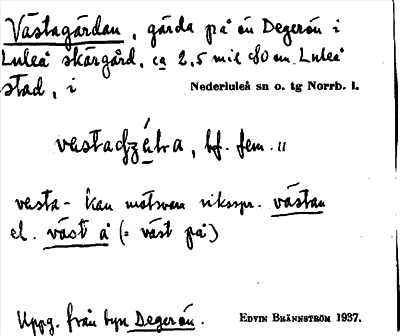 Västagärdan, gärda på ön Degerön i
Luleå skärgård, ca 2,5 mil SO om Luleå
stad, i Nederluleå sn o. tg Norrb. l.
bf. fem. "
vesta- kan motsvara riksspr. västan
el. väst å (= väst på)
Uppg. från byn Degerön. EDVIN BRÄNNSTRÖM 1937.